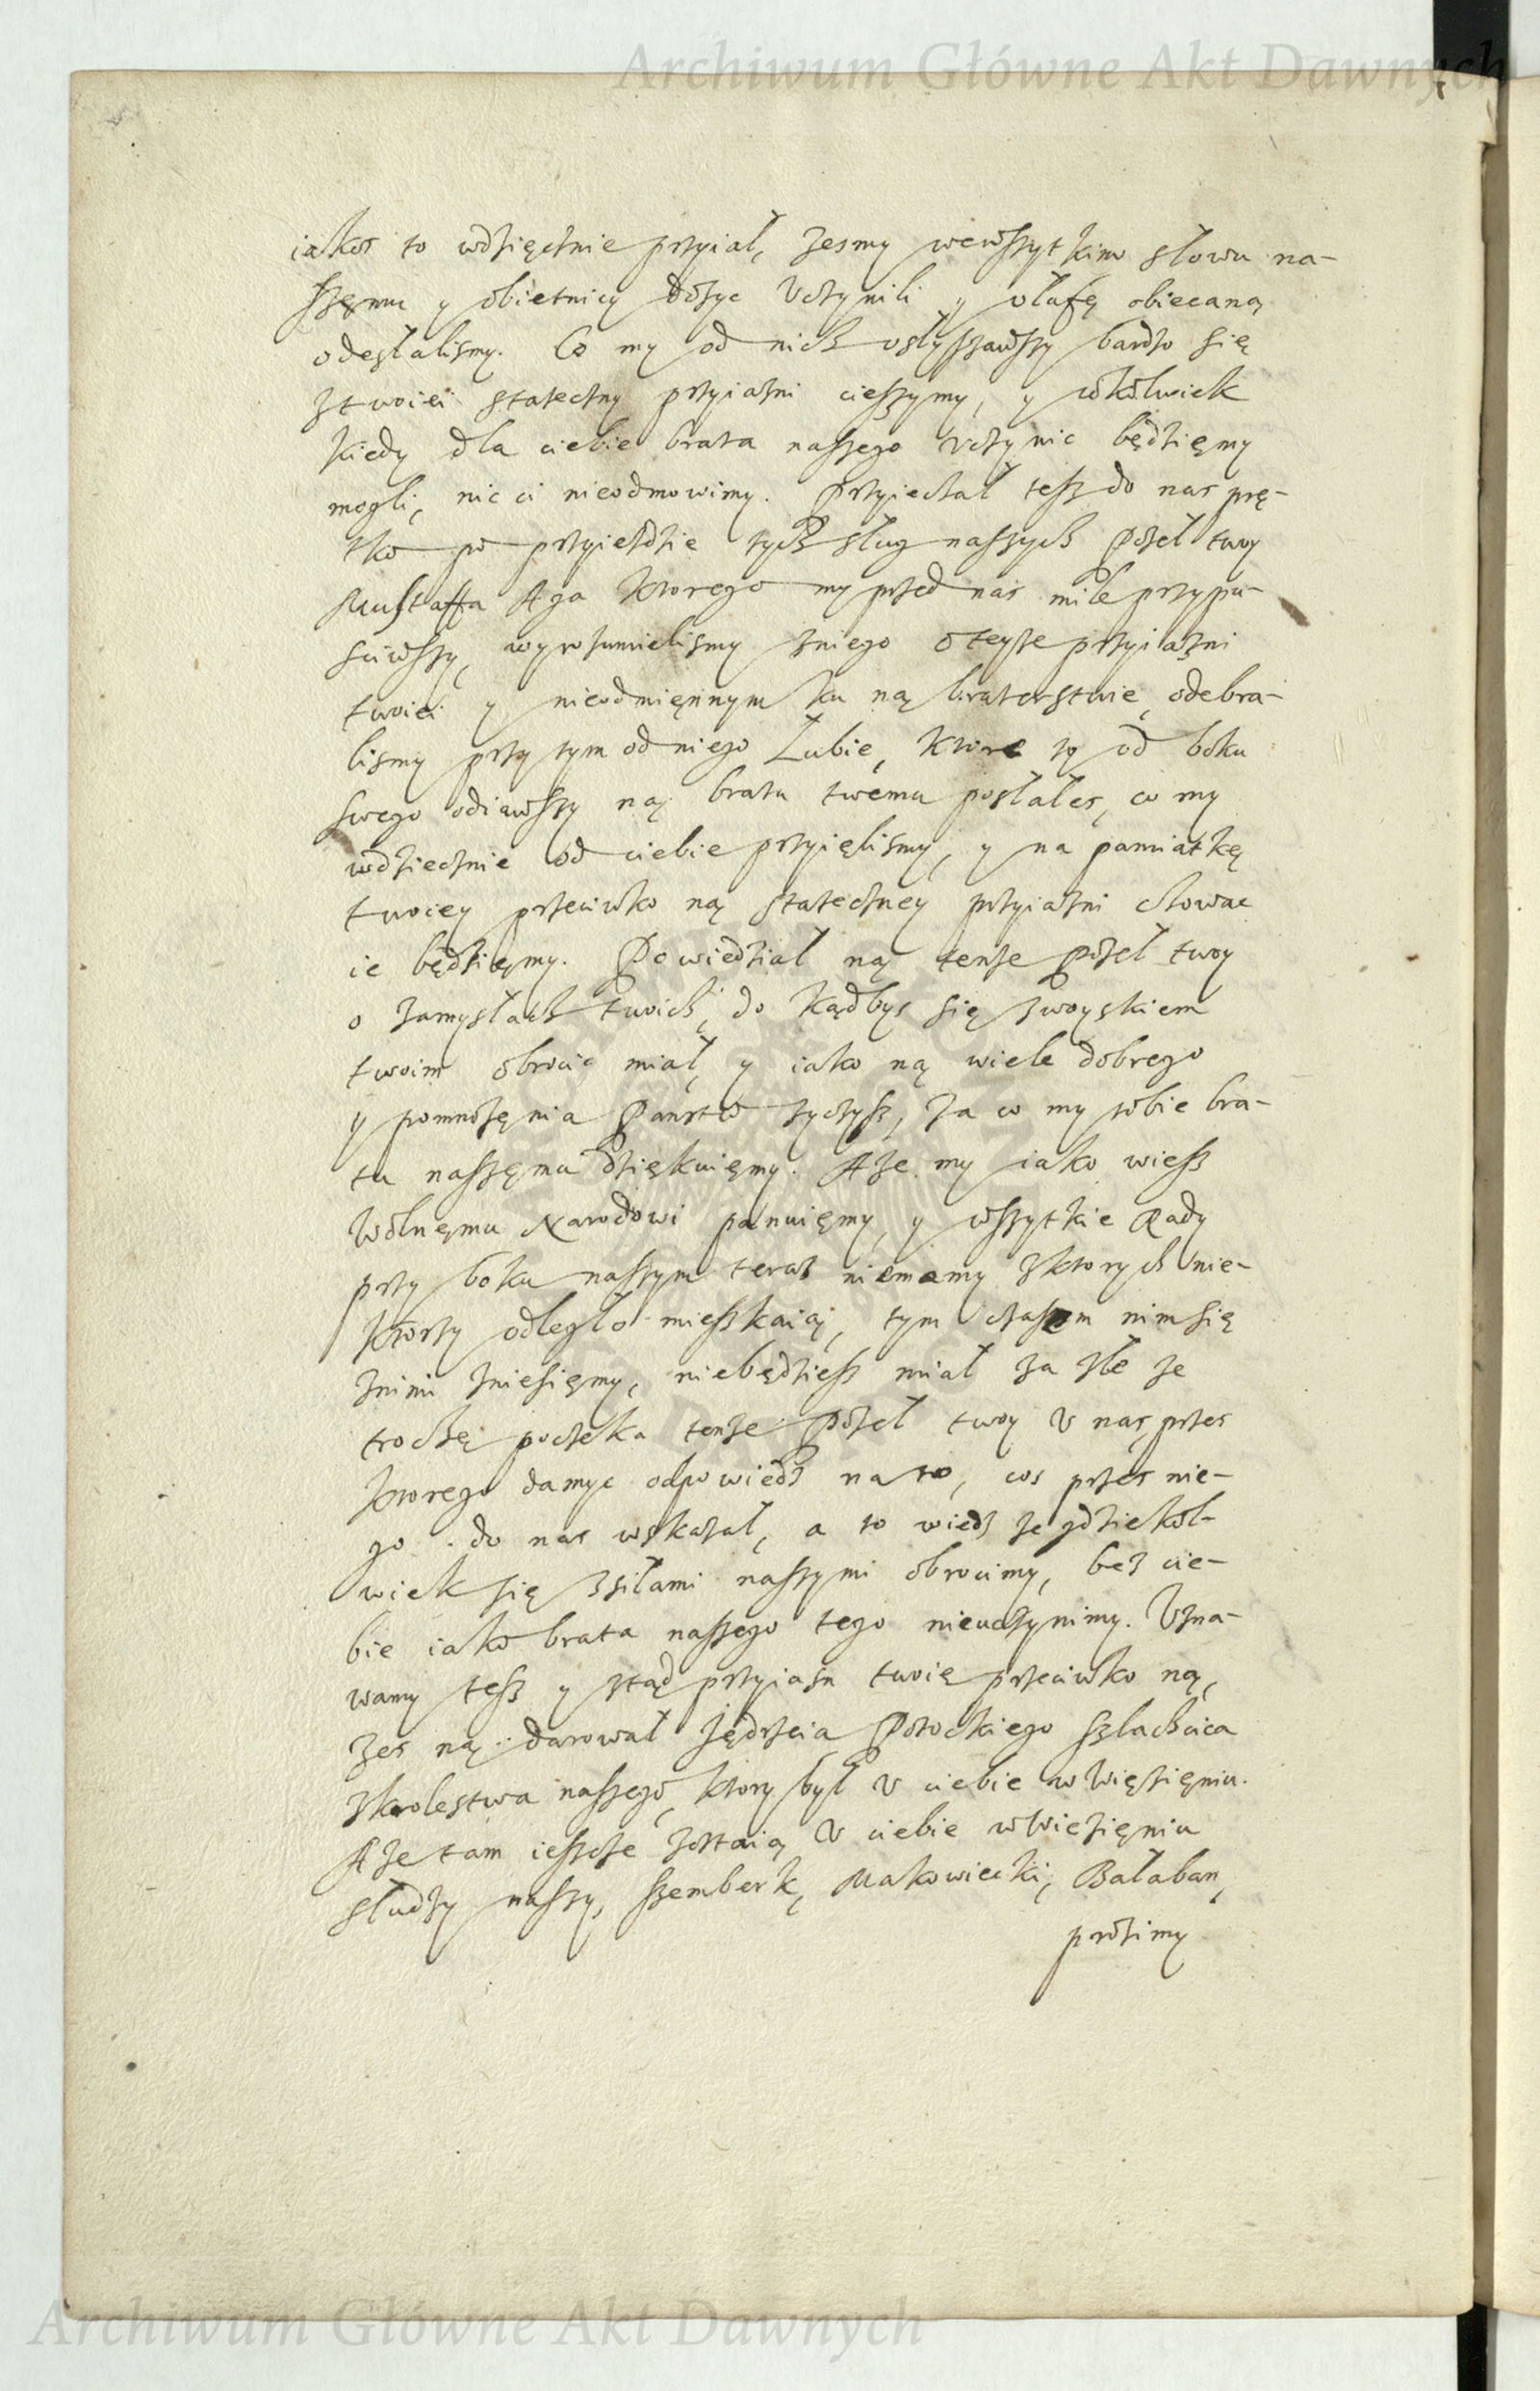 Archiwum Główne Akt Dawnych
iakos to wdzięcznie przyiał, zesmy wewszytkim słowu na-
szęmu y obietnicy dosyc vczynili y vlafę obiecaną
odesłalismy. Co my od nich vsłyszawszy bardzo się
ztwoiei stateczny przyiazni cieszymy, y cokolwiek
kiedy dla ciebie brata naszego vczynic będzięmy
mogli, nic ci nieodmowimy. Przyiechał tesz do nas prę-
tko po przyiezdzie tych sług naszych Poseł twoy
Mustaffa Aga ktorego my przed nas mile przypu-
sciwszy, wyrozumielismy zniego oteyze przyiazni
twoiei y nieodmięnnym ku ną braterstwie, odebra-
lismy przy tym od niego Łubie, ktore ty od boku
swego odiąwszy ną bratu twemu posłałes, co my
wdziecznie od ciebie przyięlismy, y na pamiatkę
twoiey przeciwko ną stateczney przyiazni chowac
ie będzięmy. Powiedział ną tenze Poseł twoy
o zamysłach twoich, do kądbys się zwoyskiem
twoim obrocic miał, y iako ną wiele dobrego
y pomnozęnia Panstw zyczysz, za co my tobie bra-
tu naszęmu dziękuięmy. A ze my iako wiesz
Wolnęmu Narodowi panuięmy, y wszytkie Rady
przy boku naszym teraz niemamy zktorych nie-
ktorzy odległo mieszkaią, tym czasem nim się
znimi zniesięmy, niebędziesz miał za złe ze
trochę poczeka tenze Poseł twoy v nas, przes
ktorego damyc odpowiedz na to, cos przes nie-
go do nas wskazał, a to wiedz ze gdziekol-
wiek się zsiłami naszymi obrocimy, bez cie-
bie iako brata naszego tego nieuczynimy. Vzna-
wamy tesz y ztąd przyiazn twoię przeciwko ną,
zes ną darował Jędrzeia Potockiego szlachcica
zkrolestwa naszego, ktory był v ciebie w więzięniu.
A ze tam ieszcze zostaią v ciebie w więzięniu
słudzy naszy, Szemberk, Makowiecki, Bałaban,
prosimy
Archiwum Główne Akt Dawnych